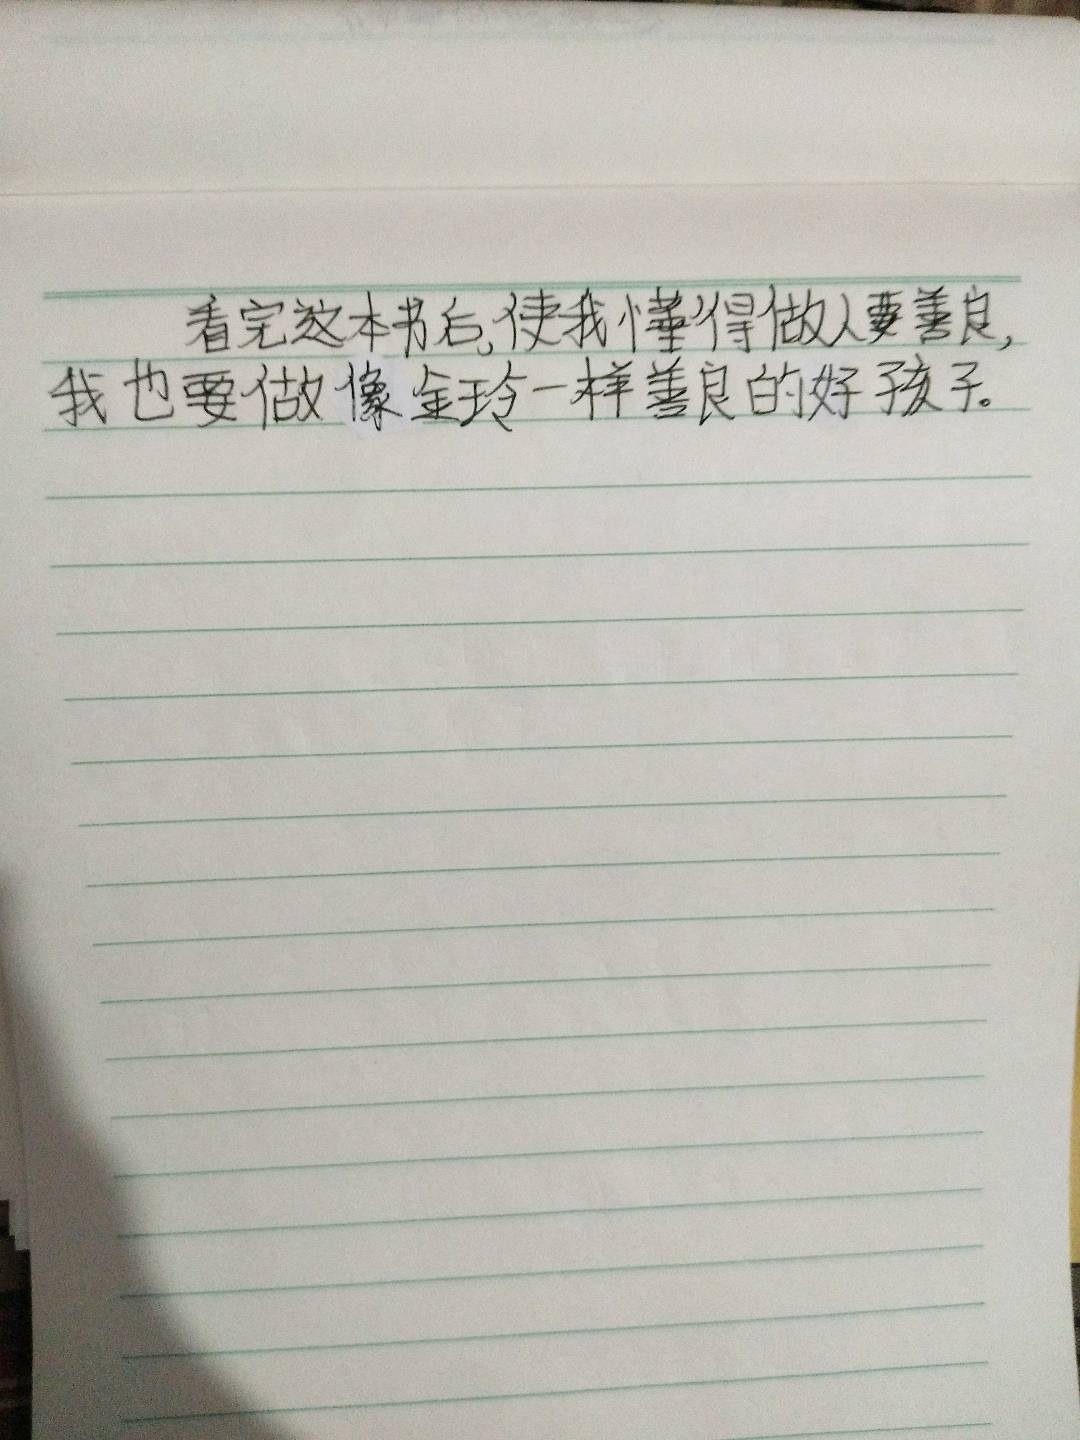 看完这本书后,使我懂得做人要善良,
我也要做像金玲一样善良的好孩子。